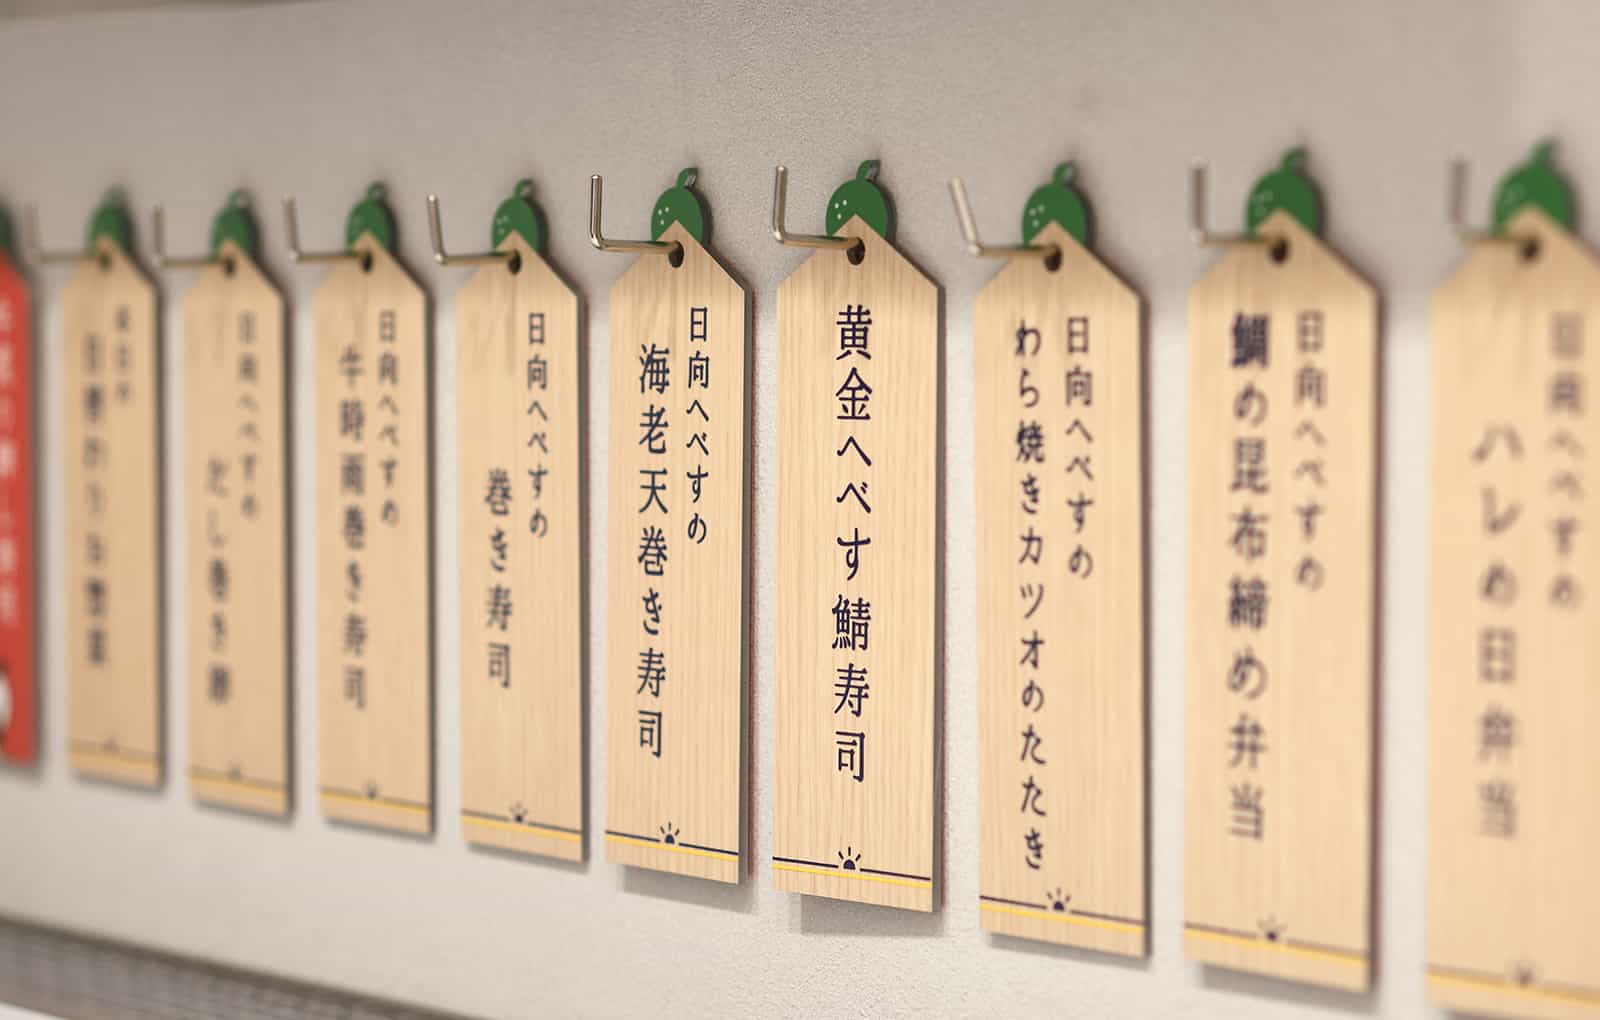 日向へべすの
ハレの日弁当
日向へべすの
鯛の昆布締め弁当
日向へべすの
わら焼きカツオのたたき
黄金へべす鯖寿司
日向へべすの
海老天巻き寿司
日向へべすの
巻き寿司
日向へべすの
牛時雨巻き寿司
日向へべすの
だし巻き卵